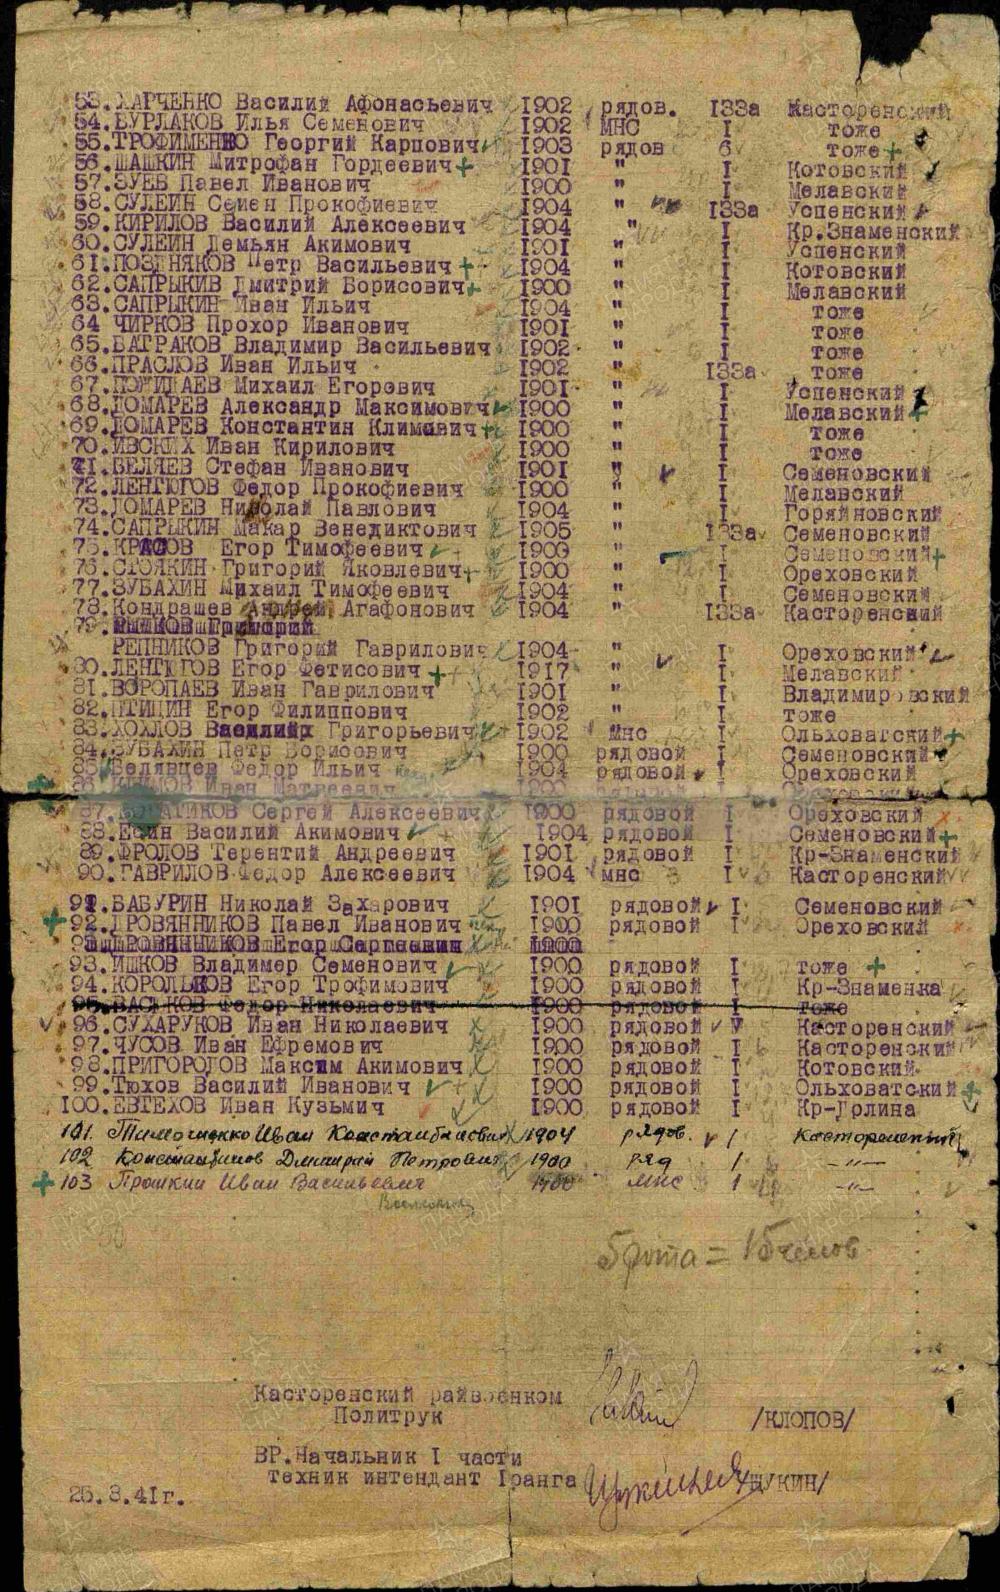 53.ХАРЧЕНКО Василий Афонасьевич 1902 рядов. 133а Касторенский
54.БУРЛАКОВ Илья Семенович 1902 МНС I тоже
55.ТРОФИМЕНКО Георгий Карпович 1903 рядов 6 тоже +
56.ШАШКИН Митрофан Гордеевич + 1901 " I Котовский
57.ЗУЕВ Павел Иванович 1900 " I Мелавский
58.СУЛЕИН Семен Прокофиевич 1904 " 133а Успенский
59.КИРИЛОВ Василий Алексеевич 1904 " I Кр.Знаменский
60.СУЛЕИН Демьян Акимович 1901 " I Успенский
61.ПОЗДНЯКОВ Петр Васильевич + 1904 " I Котовский
62.САПРЫКИВ Дмитрий Борисович + 1900 " I Мелавский
63.САПРЫКИН Иван Ильич 1904 " I тоже
64 ЧИРКОВ Прохор Иванович 1901 " I тоже
65.БАТРАКОВ Владимир Васильевич 1902 " I тоже
66.ПРАСЛОВ Иван Ильич 1902 " 133а тоже
67. Михаил Егорович 1901 " I Успенский
68.ДОМАРЕВ Александр Максимович 1900 " I Мелавский +
69.ДОМАРЕВ Константин Климавич + 1900 " I тоже
70.ИВСКИХ Иван Кирилович 1900 " I тоже
71.БЕЛЯЕВ Стефан Иванович 1901 " I Семеновский
72.ЛЕНТЮГОВ Федор Прокофиевич 1900 " I Мелавский
73.ДОМАРЕВ Николай Павлович 1904 " I Горяйновский
74.САПРЫКИН Макар Венедиктович 1905 " 133а Семеновский
75.КРАСОВ Егор Тимофеевич 1900 " I Семеновский +
76.СТОЯКИН Григорий Яковлевич + 1900 " I Ореховский
77.ЗУБАХИН Михаил Тимофеевич 1904 " I Семеновский
78.Кондрашев Андрей Агафонович 1904 " 133а Касторенский
79.
РЕПНИКОВ Григорий Гаврилович 1904 " I Ореховский
80.ЛЕНТЮГОВ Егор Фетисович + 1917 " I Мелавский
81.ВОРОПАЕВ Иван Гаврилович 1901 " I Владимировский
82.ПТИЦИН Егор Филиппович 1902 " I тоже
83.ХОХЛОВ Василий Григорьевич + 1902 Мнс I Ольховатский +
84.ЗУБАХИН Петр Борисович 1900 рядовой I Семеновский
85.Белявцев Федор Ильич 1904 рядовой I Ореховский
86. Иван Матвеевич 1900
87. Сергей Алексеевич 1900 рядовой I Ореховский
88.Есин Василий Акимович 1904 рядовой I Семеновский +
89.ФРОЛОВ Терентий Андреевич 1901 рядовой I Кр-Знаменский
90.ГАВРИЛОВ Федор Алексеевич 1904 мнс I Касторенский
91.БАБУРИН Николай Захарович 1901 рядовой I Семеновский
+ 92.ДРОВЯННИКОВ Павел Иванович 1900 рядовой I Ореховский
ДРОВЯННИКОВ Егор Сергеевич 1900
93.ИШКОВ Владимер Семенович 1900 рядовой I тоже +
94.КОРОЛЬКОВ Егор Трофимович 1900 рядовой I Кр-Знаменка
95.ВАСЬКОВ Федор Николаевич 1900 рядовой I тоже
96.СУХАРУКОВ Иван Николаевич 1900 рядовой Касторенский
97.ЧУСОВ Иван Ефремович 1900 рядовой I Касторенский
98.ПРИГОРОДОВ Максим Акимович 1900 рядовой I Котовский
99.Тюхов Василий Иванович 1900 рядовой I Ольховатский +
100.ЕВТЕХОВ Иван Кузьмич 1900 рядовой I Кр-Долина
101. Тимошенко Иван Константинович 1904 рядов. 1 Касторенский
102 Константинов Дмитрий Петрович 1900 ряд 1 -"-
+ 103 Прошкин Иван Васильевич 1900 мнс 1 -"-
5 рота = 15 челов.
Касторенский райвоенком
Политрук /КЛОПОВ/
ВР.Начальник I части
техник интендант Iранга /ЩУКИН/
25.8.41г.